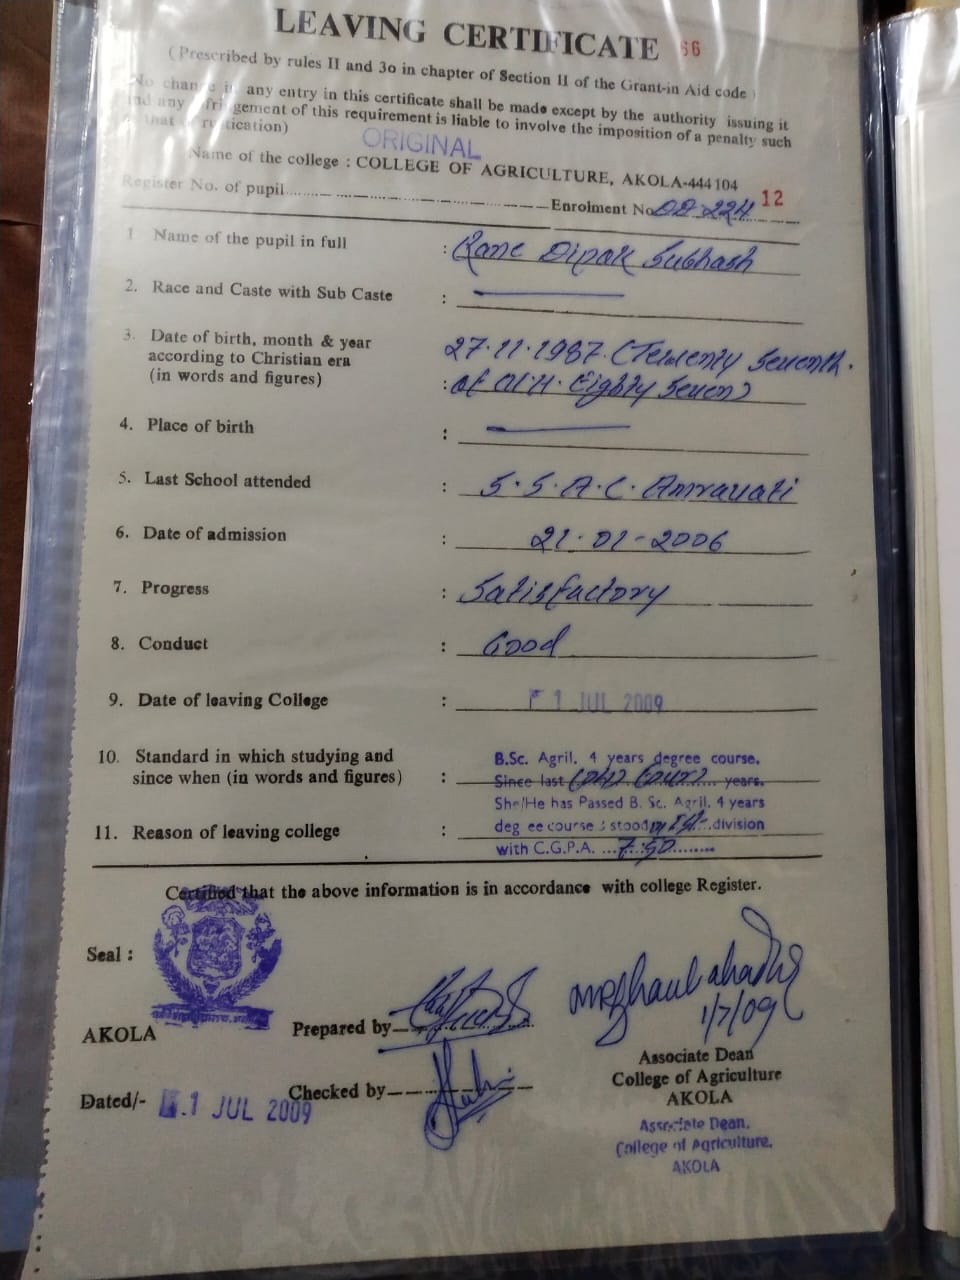 LEAVING CERTIFICATE 66
(Prescribed by rules II and 3o in chapter of Section II of the Grant-in Aid code)
No change in any entry in this certificate shall be made except by the authority issuing it
and any infringement of this requirement is liable to involve the imposition of a penalty such
that of rustication)
ORIGINAL
Name of the college : COLLEGE OF AGRICULTURE, AKOLA-444 104
Register No. of pupil Enrolment No. DD-224 12
1 Name of the pupil in full : Rane Dipak Subhash
2. Race and Caste with Sub Caste :
3. Date of birth, month & year 27.11.1987. (Twenty Seventh.
according to Christian era
(in words and figures) : of Eighty Seven)
4. Place of birth :
5. Last School attended : S.S.A.C. Amravati
6. Date of admission : 21-01-2006
7. Progress : Satisfactory
8. Conduct : Good
9. Date of leaving College : 1 JUL 2009
10. Standard in which studying and B.Sc. Agril. 4 years degree course.
since when (in words and figures) : Since last (04) Four years.
She/He has Passed B. Sc. Agril. 4 years
11. Reason of leaving college : deg ee course : stood in Ist division
with C.G.P.A. ...7.50.........
Certified that the above information is in accordance with college Register.
Seal :
AKOLA Prepared by
1/7/09
Associate Dean
College of Agriculture
AKOLA
Dated/- 1 JUL 2009 Checked by
Associate Dean,
College of Agriculture,
AKOLA